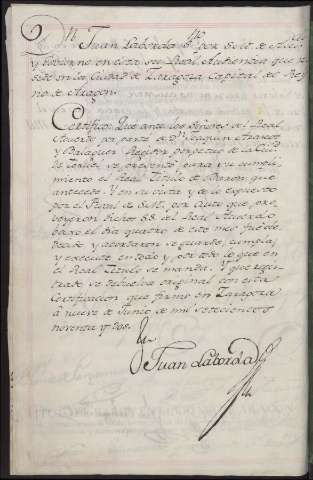 Dn. Juan Laborda Sº por S. M. de Acdo
y Govierno en esta su Real Audiencia que re
side en la Ciudad de Zaragoza Capital del Rey
no de Aragon.
Certifico: Que ante los Señores del Real
Acuerdo por parte de Dn. Joaquin
y Balaguer Regidor perpetuo de la Ciud.
se presentó para su cumpli
miento el Real Titulo de Baron que
antecede. Y en su vista y de lo expuesto
por el Fiscal de S. M. por Auto que pro
beyeron dichos SS. del Real Acuerdo
baxo el dia quatro de este mes fue obe
decido y acordaron se guarde, cumpla,
y execute en todo y por todo lo que en
el Real Titulo se manda. Y que regis
trado se debuelva original con esta
Certificacion que firmo en Zaragoza
á nueve de Junio de mil setecientos
noventa y dos.
Juan Laborda